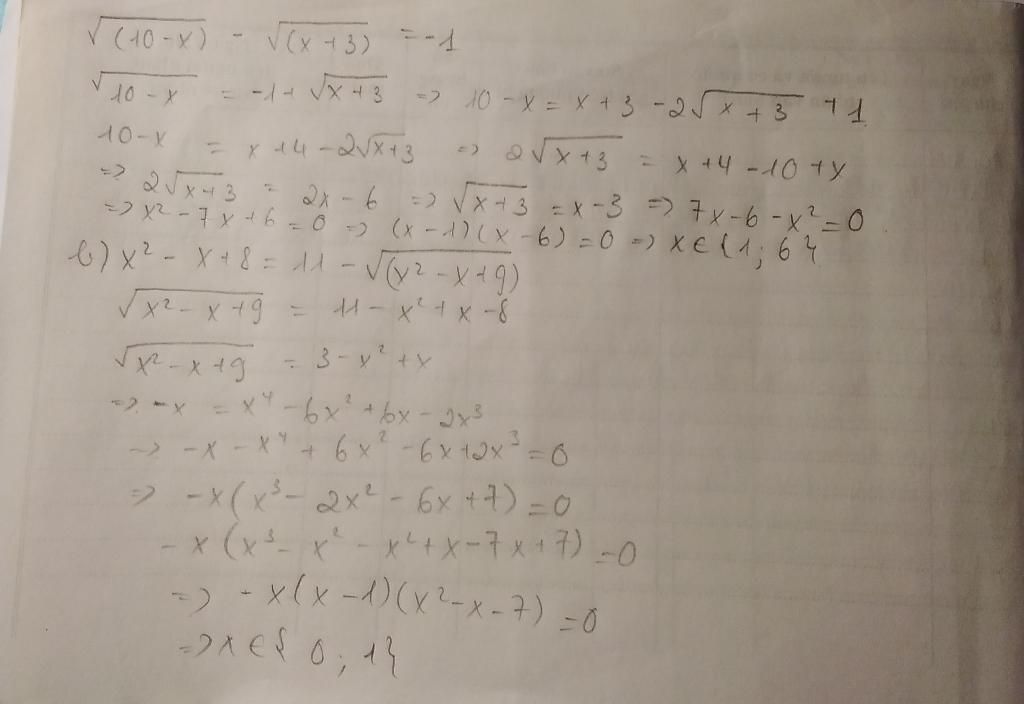 √(10-x) - √(x+3) = -1
√10-x = -1+√x+3 => 10-x = x+3 -2√x+3 +1
10-x = x+4-2√x+3 => 2√x+3 = x+4-10+x
=> 2√x+3 = 2x-6 => √x+3 = x-3 => 7x-6-x²=0
=> x²-7x+6=0 => (x-1)(x-6)=0 => x∈{1;6}
b) x²-x+8=11-√(x²-x+9)
√x²-x+9 = 11-x²+x-8
√x²-x+9 = 3-x²+x
=> -x = x⁴-6x²+6x-2x³
-> -x-x⁴+6x²-6x+2x³=0
=> -x(x³-2x²-6x+7)=0
-x(x³-x²-x²+x-7x+7)=0
=> -x(x-1)(x²-x-7)=0
=> x∈{0;1}